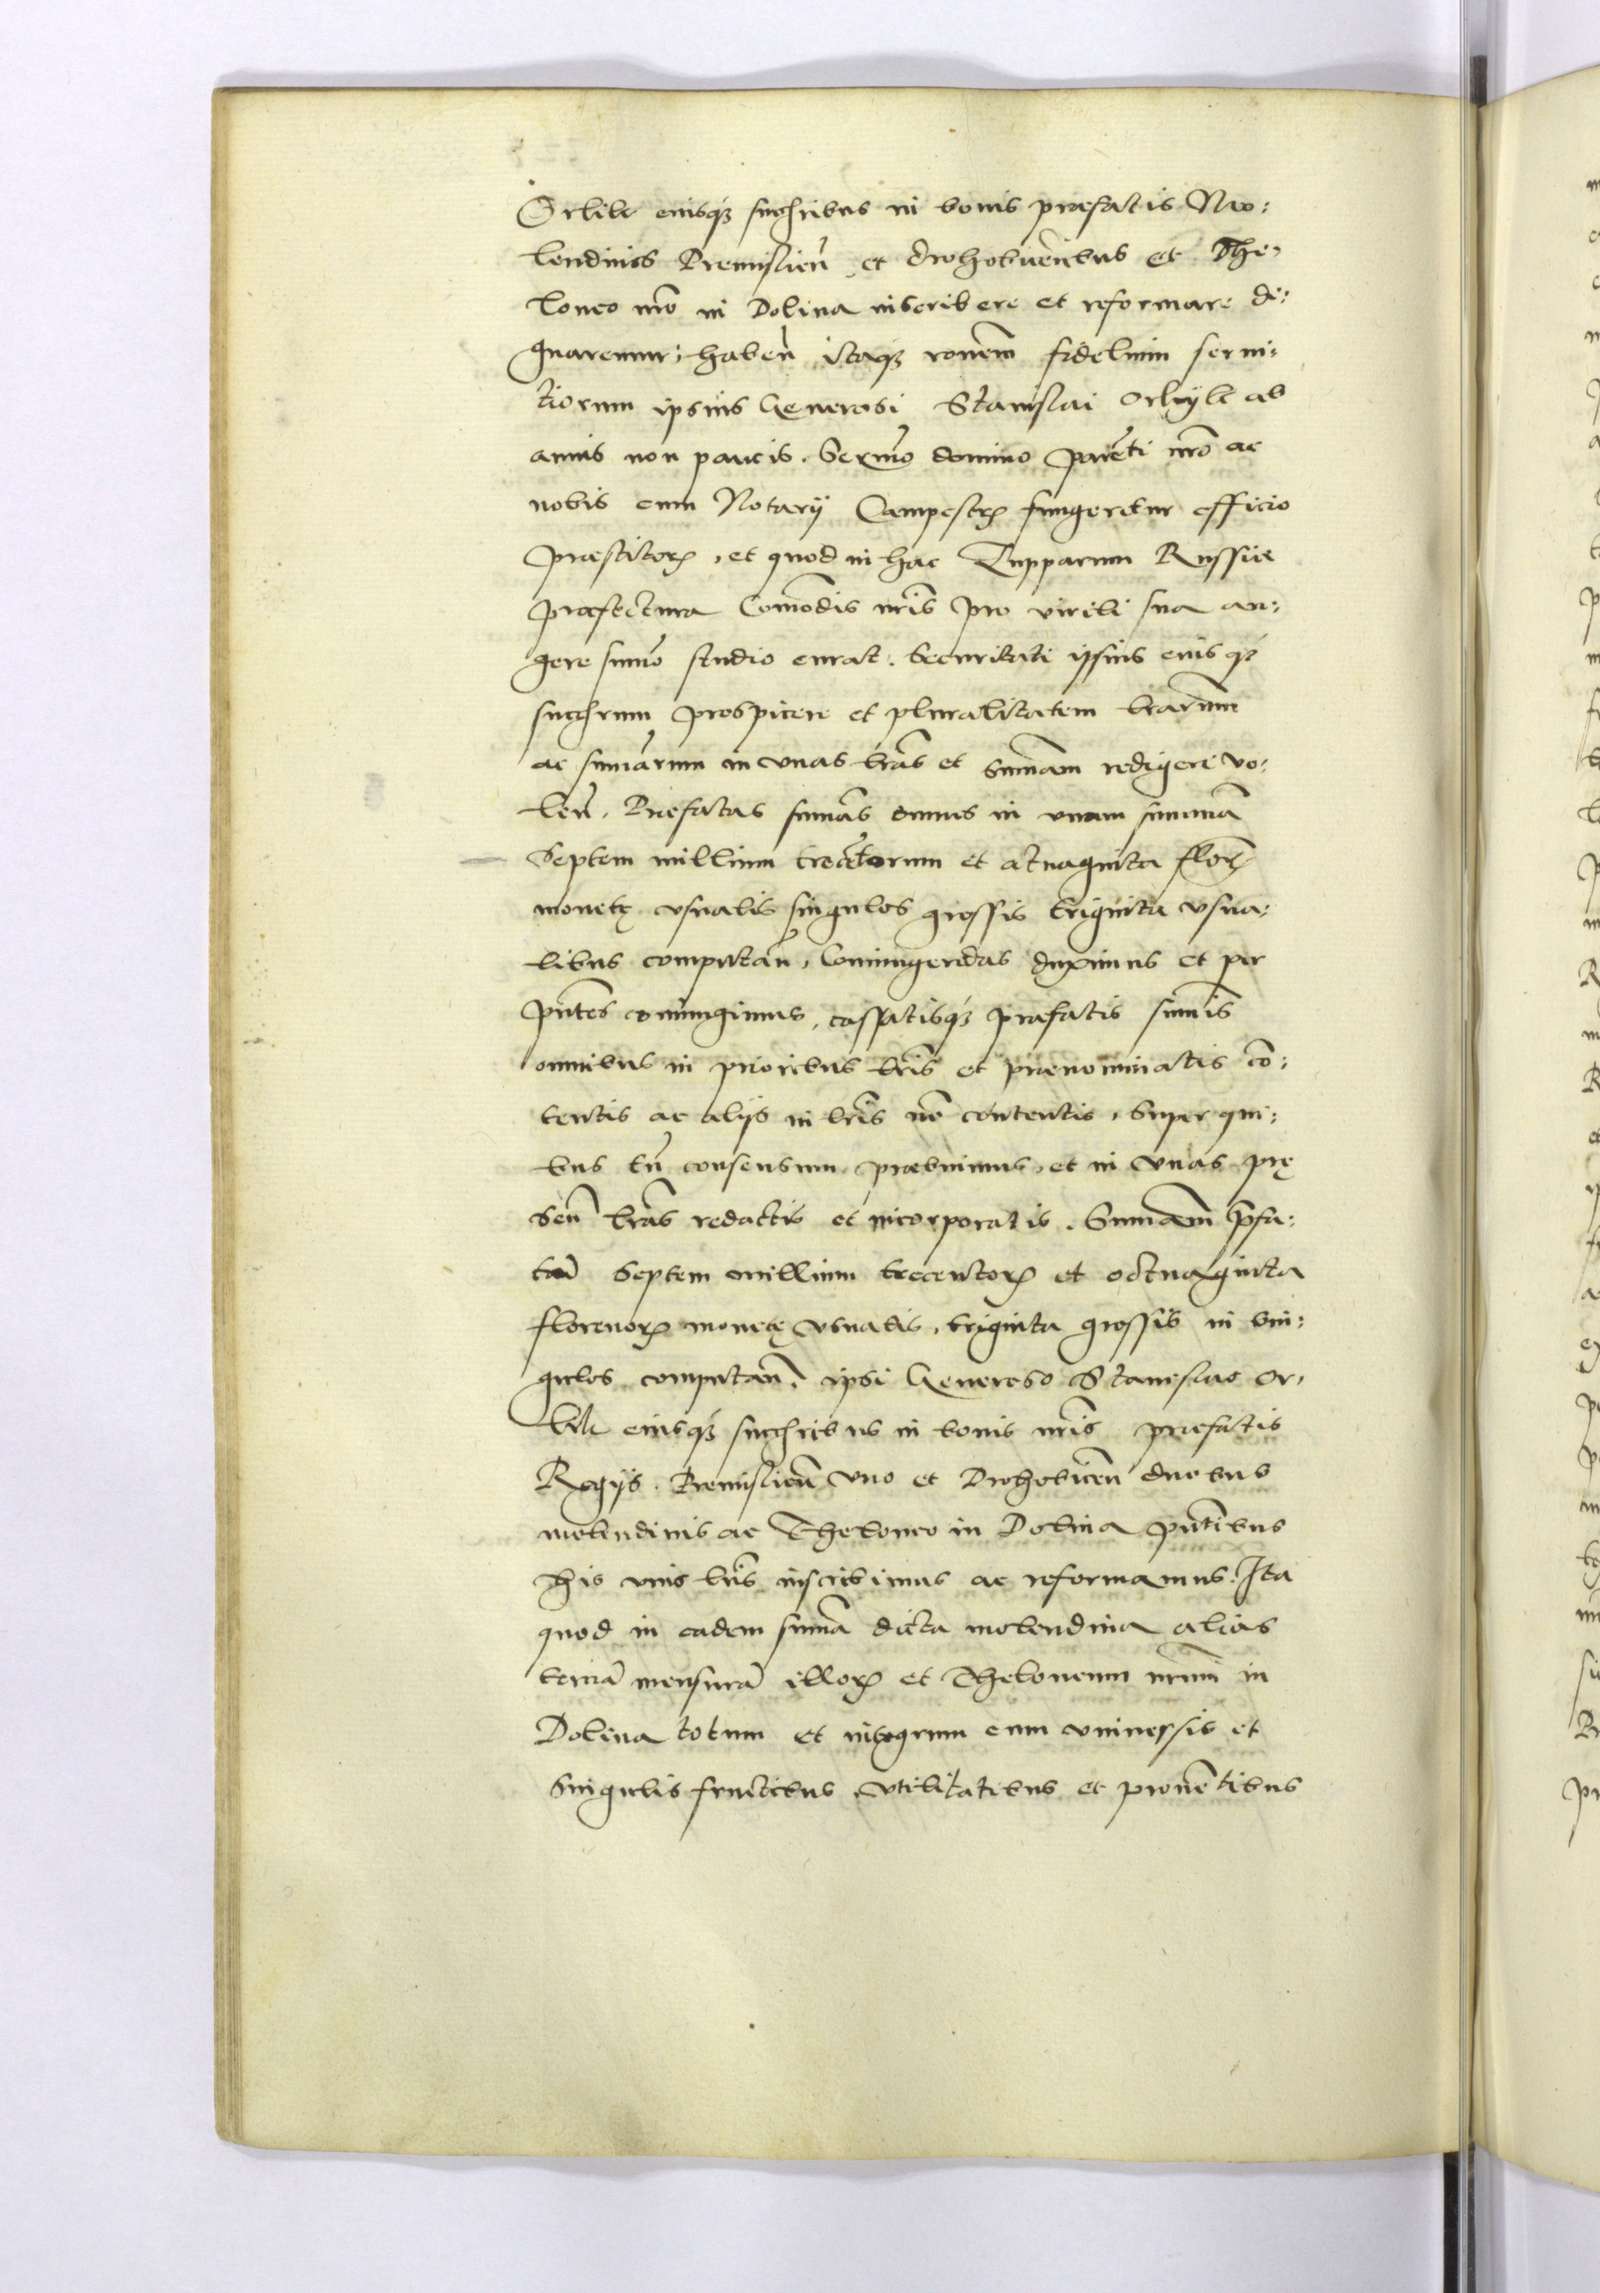 Orlik eiusq́ꝫ succ̃ribus in bonis præfatis Mo:
lendinis Premislien̄ et drohobicen̄bus et The:
loneo nr̄o in Dolina inscribere et reformare di:
gnaremur; haben̄ itaq́ꝫ rōnem̄ fidelium serui:
tiorum ipsius Generosi Stanislai Orlyk ab
annis non paucis. Serm̄o domino parēti nr̄o ac
nobis cum Notarij Campestrꝫ fungeretur officio
præstitorꝫ, et quod in hac Zupparum Russiæ
præfectura Com̄odis nr̄is pro virili sua au:
gere sum̄o studio curat. Securitati ipsius eiusq́ꝫ
succ̃rum prospicere et pluralitatem lrarum̄
ac sum̄arum in vnas lr̄as et sum̄am redigere vo:
len̄. Præfatas sum̄as omnes in vnam summā
Septem millium trecētorum et octuaginta florꝫ
monetę vsualis singulos grossis triginta vsua:
libus computan̄, Coniungendas duximus et per
pn̄tes coniungimus, cassatisq́ꝫ præfatis sum̄is
omnibus in prioribus lr̄is et prænominatis cō:
tentis ac alijs in lr̄is nō contentis, super qui:
bus tn̄ consensum præbuimus, et in vnas prę
sen̄ lr̄as redactis et incorporatis. Sum̄am p̄fa:
tam̄ Septem millium trecentorꝫ et octuaginta
florenorꝫ monetę vsualis, triginta grossis in sin:
gulos computan̄. ipsi Generoso Stanislao Or:
lik eiusq́ꝫ succ̃ribus in bonis nr̄is præfatis
Regijs. Premislien̄ vno et Drohobicen̄ duobus
molendinis ac Theloneo in Dolina pn̄tibus
his vnis lr̄is inscribimus ac reformamus. Ita
quod in eadem sum̄a dicta molendina alias
terciā mensurā illorꝫ et Theloneum nr̄um in
Dolina totum et integrum cum vniuersis et
Singulis fructibus vtilitatibus et prouētibus